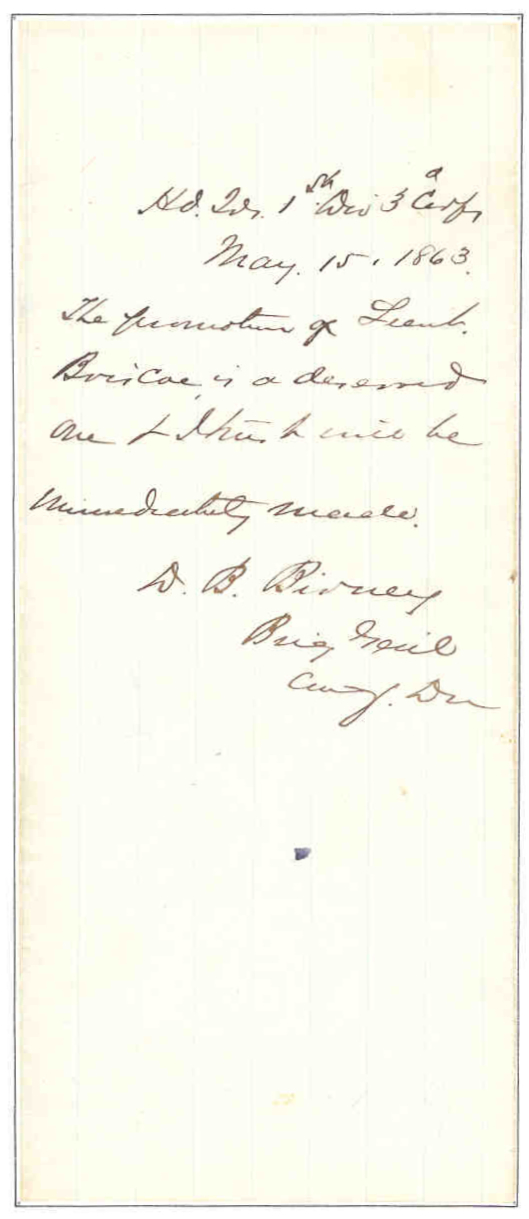 Hd. Qrs. 1st Div 3d Corps
May. 15. 1863.
The promotion of Lieut.
Briscoe, is a deserved
one & I trust will be
immediately made.
D. B. Birney
Brig Genl
Comg. Div